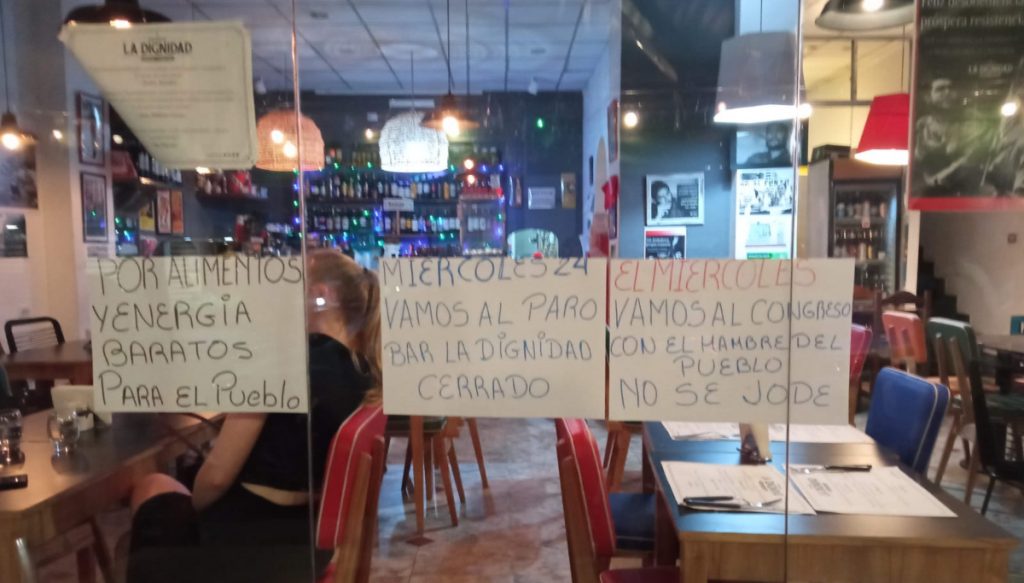 LA DIGNIDAD
Feliz desobediencia
próspera resistencia
LA DIGNIDAD
POR ALIMENTOS
Y ENERGÍA
BARATOS
PARA EL PUEBLO
MIERCOLES 24
VAMOS AL PARO
BAR LA DIGNIDAD
CERRADO
EL MIERCOLES
VAMOS AL CONGRESO
CON EL HAMBRE DEL
PUEBLO
NO SE JODE